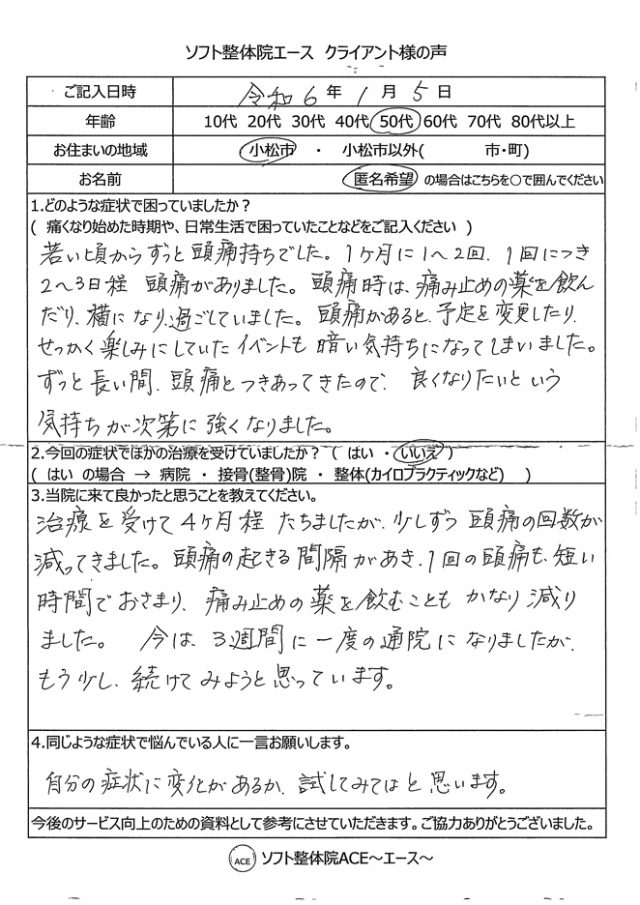 ソフト整体院エース クライアント様の声
ご記入日時 令和 6 年 1 月 5 日
年齢 10代 20代 30代 40代 50代 60代 70代 80代以上
お住まいの地域 小松市 ・ 小松市以外( 市・町)
お名前 匿名希望 の場合はこちらを○で囲んでください
1.どのような症状で困っていましたか?
( 痛くなり始めた時期や、日常生活で困っていたことなどをご記入ください )
若い頃からずっと頭痛持ちでした。1ヶ月に1~2回、1回につき
2~3日程 頭痛がありました。頭痛時は、痛み止めの薬を飲ん
だり、横になり、過ごしていました。頭痛があると、予定を変更したり、
せっかく楽しみにしていたイベントも暗い気持ちになってしまいました。
ずっと長い間、頭痛とつきあってきたので、良くなりたいという
気持ちが次第に強くなりました。
2.今回の症状でほかの治療を受けていましたか? ( はい ・ いいえ )
( はい の場合 → 病院 ・ 接骨(整骨)院 ・ 整体(カイロプラクティックなど) )
3.当院に来て良かったと思うことを教えてください。
治療を受けて4ヶ月程たちましたが、少しずつ頭痛の回数が
減ってきました。頭痛の起きる間隔があき、1回の頭痛も、短い
時間でおさまり、痛み止めの薬を飲むこともかなり減り
ました。 今は、3週間に一度の通院になりましたが、
もう少し、続けてみようと思っています。
4.同じような症状で悩んでいる人に一言お願いします。
自分の症状に変化があるか、試してみてはと思います。
今後のサービス向上のための資料として参考にさせていただきます。ご協力ありがとうございました。
ACE ソフト整体院ACE~エース~